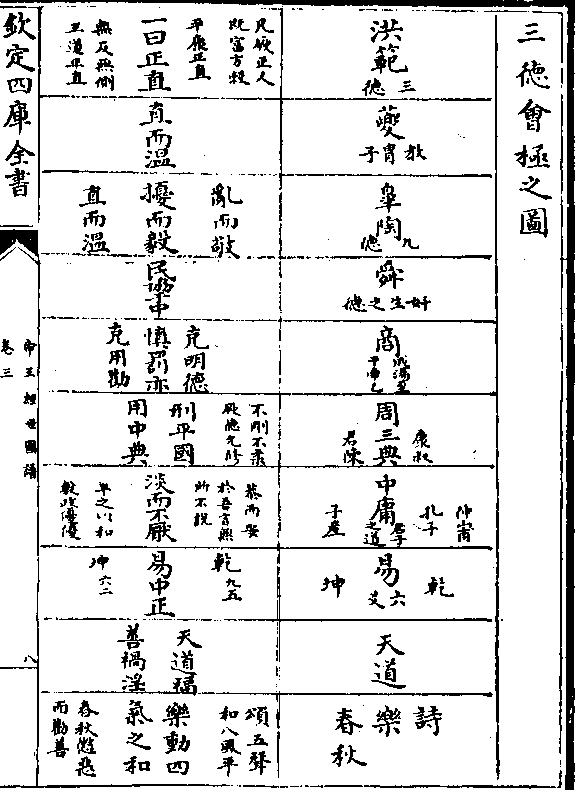 三德會極之圖
洪範
三德
夔
教胄子
皐陶
九德
舜
好生之德
商
成湯至于帝乙
周三典
康叔
君陳
中庸
君子之道
仲甯
孔子
子產
易
六爻
乾
坤
天道
詩
樂
春秋
凡厥正人
既富方穀
平康正直
一曰正直
無反無側
王道正直
直而溫
亂而敬
擾而毅
直而溫
民協于中
克明德
慎罰亦
克用勸
不剛不柔
厥德允修
刑平國
用中典
恭而安
於吾言無
所不說
淡而不厭
平之以和
敷政優優
乾九五
易中正
坤六二
天道福
善禍淫
頌五聲
和八風平
樂動四
氣之和
春秋懲惡
而勸善
欽定四庫全書
帝王經世圖譜
卷三
八